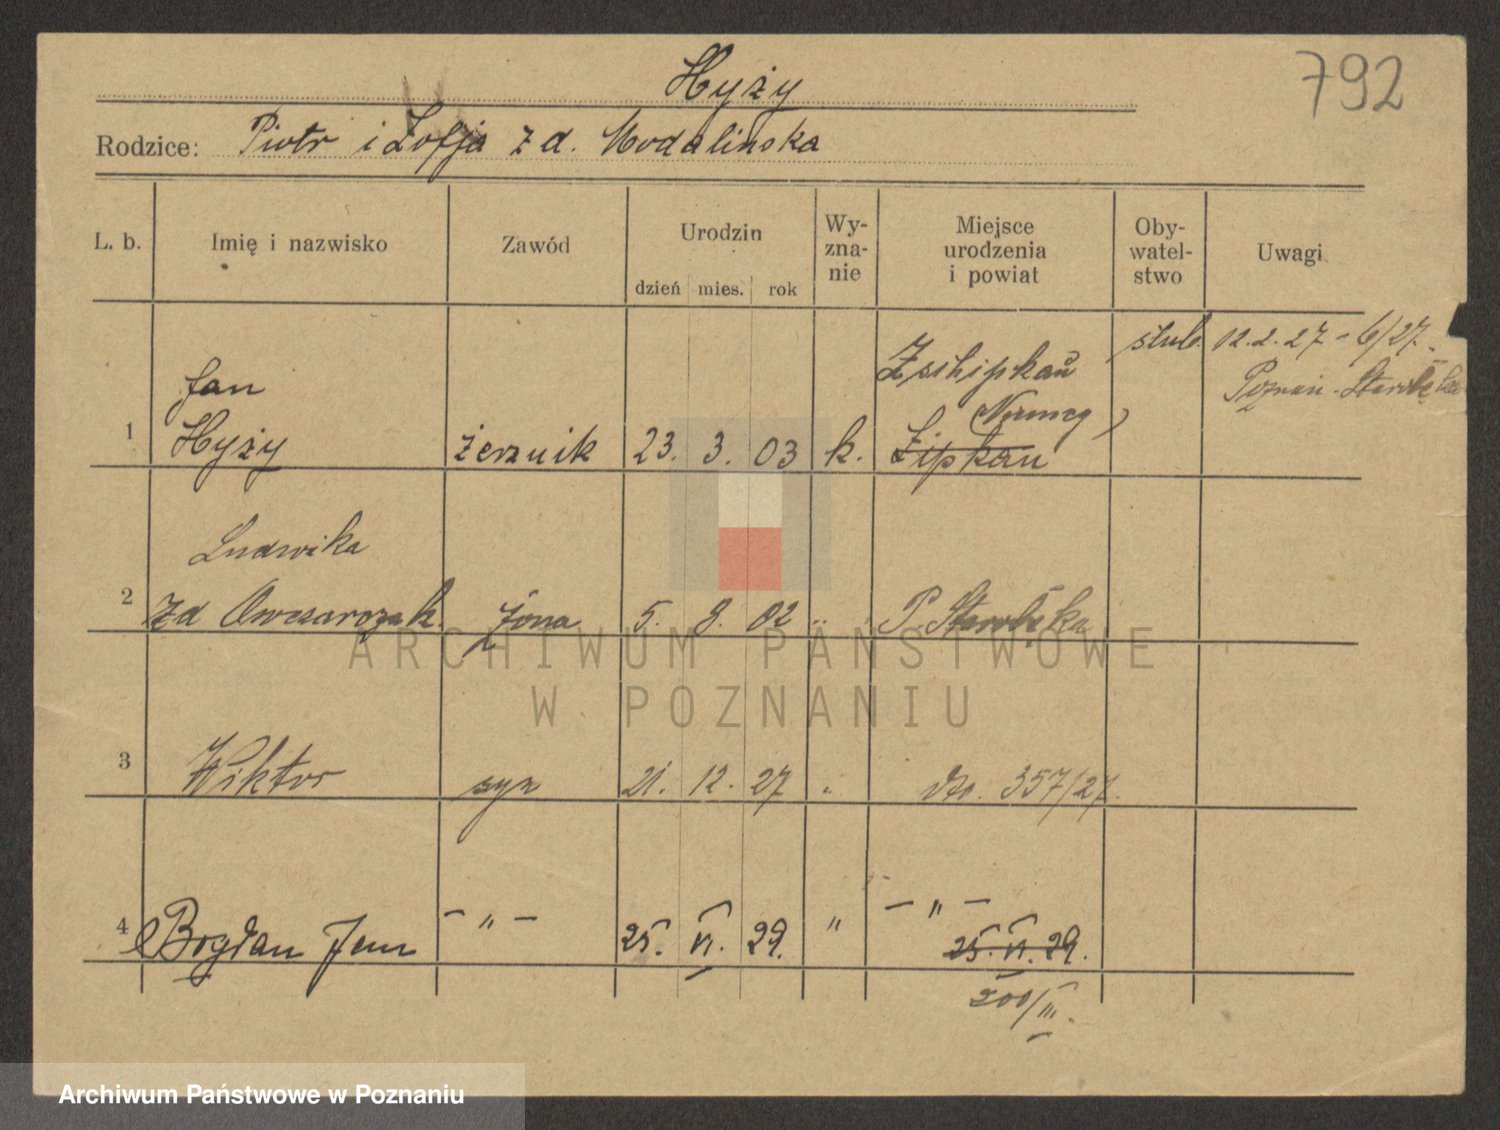 Hyży
792
Rodzice: Piotr i Zofja z d. Modalińska
L. b.
Imię i nazwisko
Zawód
Urodzin
dzień mies. rok
Wy-
zna-
nie
Miejsce
urodzenia
i powiat
Oby-
watel-
stwo
Uwagi
1
Jan
Hyży
żerznik
23. 3. 03
k.
Zschipkau
Niemcy
Zipkau
ślub 12.2.27 - 6/27.
Poznań-Starołęka
2
Ludwika
z d Owczarczak.
żona
5. 8. 02
"
P. Starołęka
3
Wiktor
syn
21. 12. 27
"
dto. 357/27.
4
Bogdan Jan
- " -
25. VI. 29.
"
- " -
25. VI. 29.
200/III.
ARCHIWUM PAŃSTWOWE
W POZNANIU
Archiwum Państwowe w Poznaniu